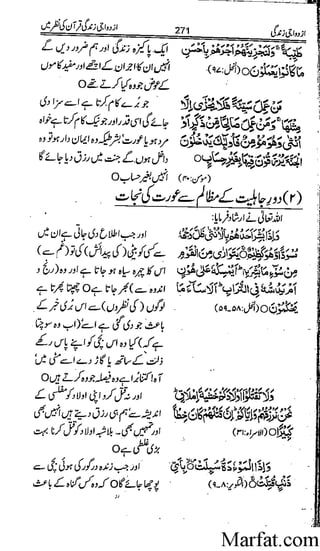 ازدواجی زندگی 271 ازدواجی زندگی قرآن کی نظر میں
طَيِّبَةً ۚ وَلَنَجْزِيَنَّهُمْ أَجْرَهُمْ بِأَحْسَنِ
مَا كَانُوا يَعْمَلُونَ (النحل:۹۷)
ایک پاکیزہ زندگی اور ہم ضرور دیں گے
انہیں ان کا اجر ان کے اچھے اور مفید کاموں
کے عوض جو وہ کیا کرتے تھے
مَنْ عَمِلَ سَيِّئَةً فَلَا يُجْزَىٰ إِلَّا
مِثْلَهَا ۖ وَمَنْ عَمِلَ صَالِحًا مِنْ ذَكَرٍ أَوْ
أُنْثَىٰ وَهُوَ مُؤْمِنٌ فَأُولَٰئِكَ يَدْخُلُونَ
الْجَنَّةَ يُرْزَقُونَ فِيهَا بِغَيْرِ حِسَابٍ
(مومن:۴۰)
جو برے کام کرتا ہے اسے سزا دی
جائے گی اسی قدر اور جو نیک کام کرتا ہے خواہ
مرد ہو یا عورت بشرطیکہ وہ ایمان دار ہو تو وہ
داخل ہوں گے جنت میں رزق دیا جائے گا
انہیں بغیر حساب
(۲) دور جاہلیت کے مظالم سے عورت کی نجات
اللہ تعالیٰ نے ارشاد فرمایا:
وَإِذَا بُشِّرَ أَحَدُهُمْ بِالْأُنْثَىٰ ظَلَّ وَجْهُهُ
مُسْوَدًّا وَهُوَ كَظِيمٌ يَتَوَارَىٰ مِنَ الْقَوْمِ
مِنْ سُوءِ مَا بُشِّرَ بِهِ ۚ أَيُمْسِكُهُ عَلَىٰ هُونٍ
أَمْ يَدُسُّهُ فِي التُّرَابِ ۗ أَلَا سَاءَ مَا
يَحْكُمُونَ (النحل:۵۸۔۵۹)
اور جب اطلاع دی جاتی ہے ان میں
سے کسی کو بیٹی (کی پیدائش) کی تو (غم سے)
اس کا چہرہ سیاہ ہو جاتا ہے اور وہ (رنج و
اندوہ سے) بھر جاتا ہے چھپتا پھرتا ہے
لوگوں (کی نظروں) سے اس بری خبر کے
باعث جو دی گئی ہے اسے (اب وہ سوچتا
ہے کہ) کیا وہ اس بچی کو اپنے پاس رکھے
ذلت کے ساتھ یا گاڑ دے اسے مٹی میں
آہ! کتنا برا ہے وہ فیصلہ جو وہ کرتے ہیں
وَلَا تَقْتُلُوا أَوْلَادَكُمْ خَشْيَةَ إِمْلَاقٍ ۖ
نَحْنُ نَرْزُقُهُمْ وَإِيَّاكُمْ ۚ إِنَّ قَتْلَهُمْ كَانَ خِطْئًا
كَبِيرًا (الاسراء:۳۱)
اور نہ قتل کرو اپنی اولاد کو مفلسی کے
اندیشہ سے ہم ہی رزق دیتے ہیں انہیں بھی
اور تمہیں بھی۔ بلاشبہ اولاد کو قتل کرنا بہت
بڑی غلطی ہے
وَإِذَا الْمَوْءُودَةُ سُئِلَتْ بِأَيِّ
ذَنْبٍ قُتِلَتْ (التکویر:۸۔۹)
اور جب زندہ درگور کی ہوئی بچی سے
پوچھا جائے گا کہ وہ کس گناہ کے باعث
Marfat.com